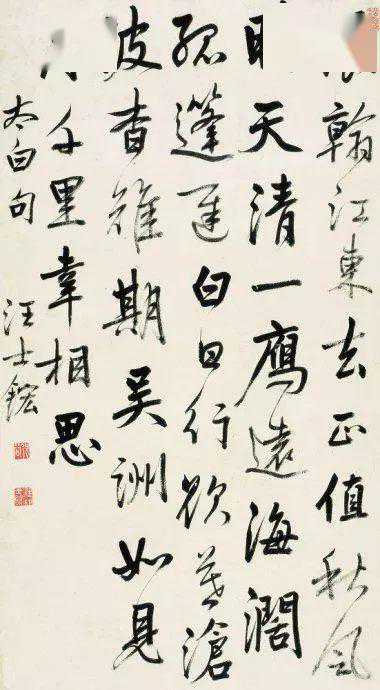 翰江東去正值秋風
天清一鴈遠海闊
孤蓬遲白日行欲暮滄
波杳難期吴洲如見
千里幸相思
太白句 汪士鋐